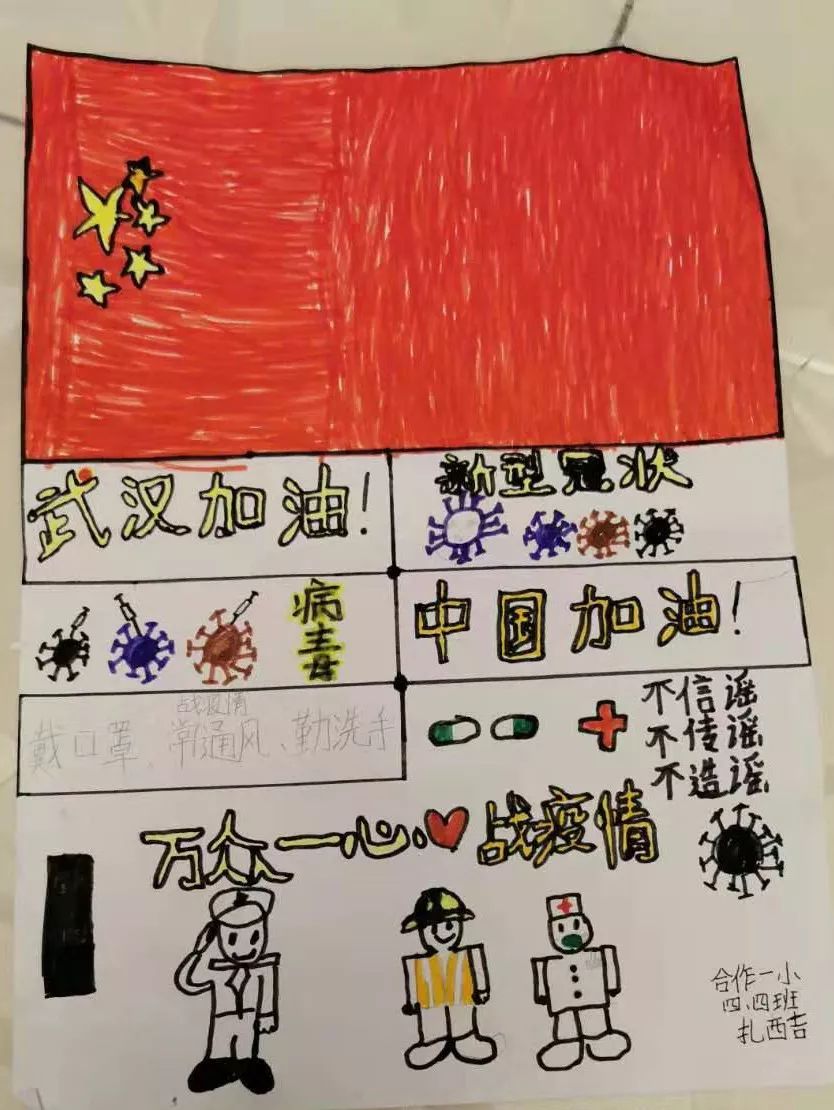 武汉加油!
新型冠状
病毒
中国加油!
战疫情
戴口罩、常通风、勤洗手
不信谣
不传谣
不造谣
万众一心战疫情
合作一小
四.四班
扎西吉